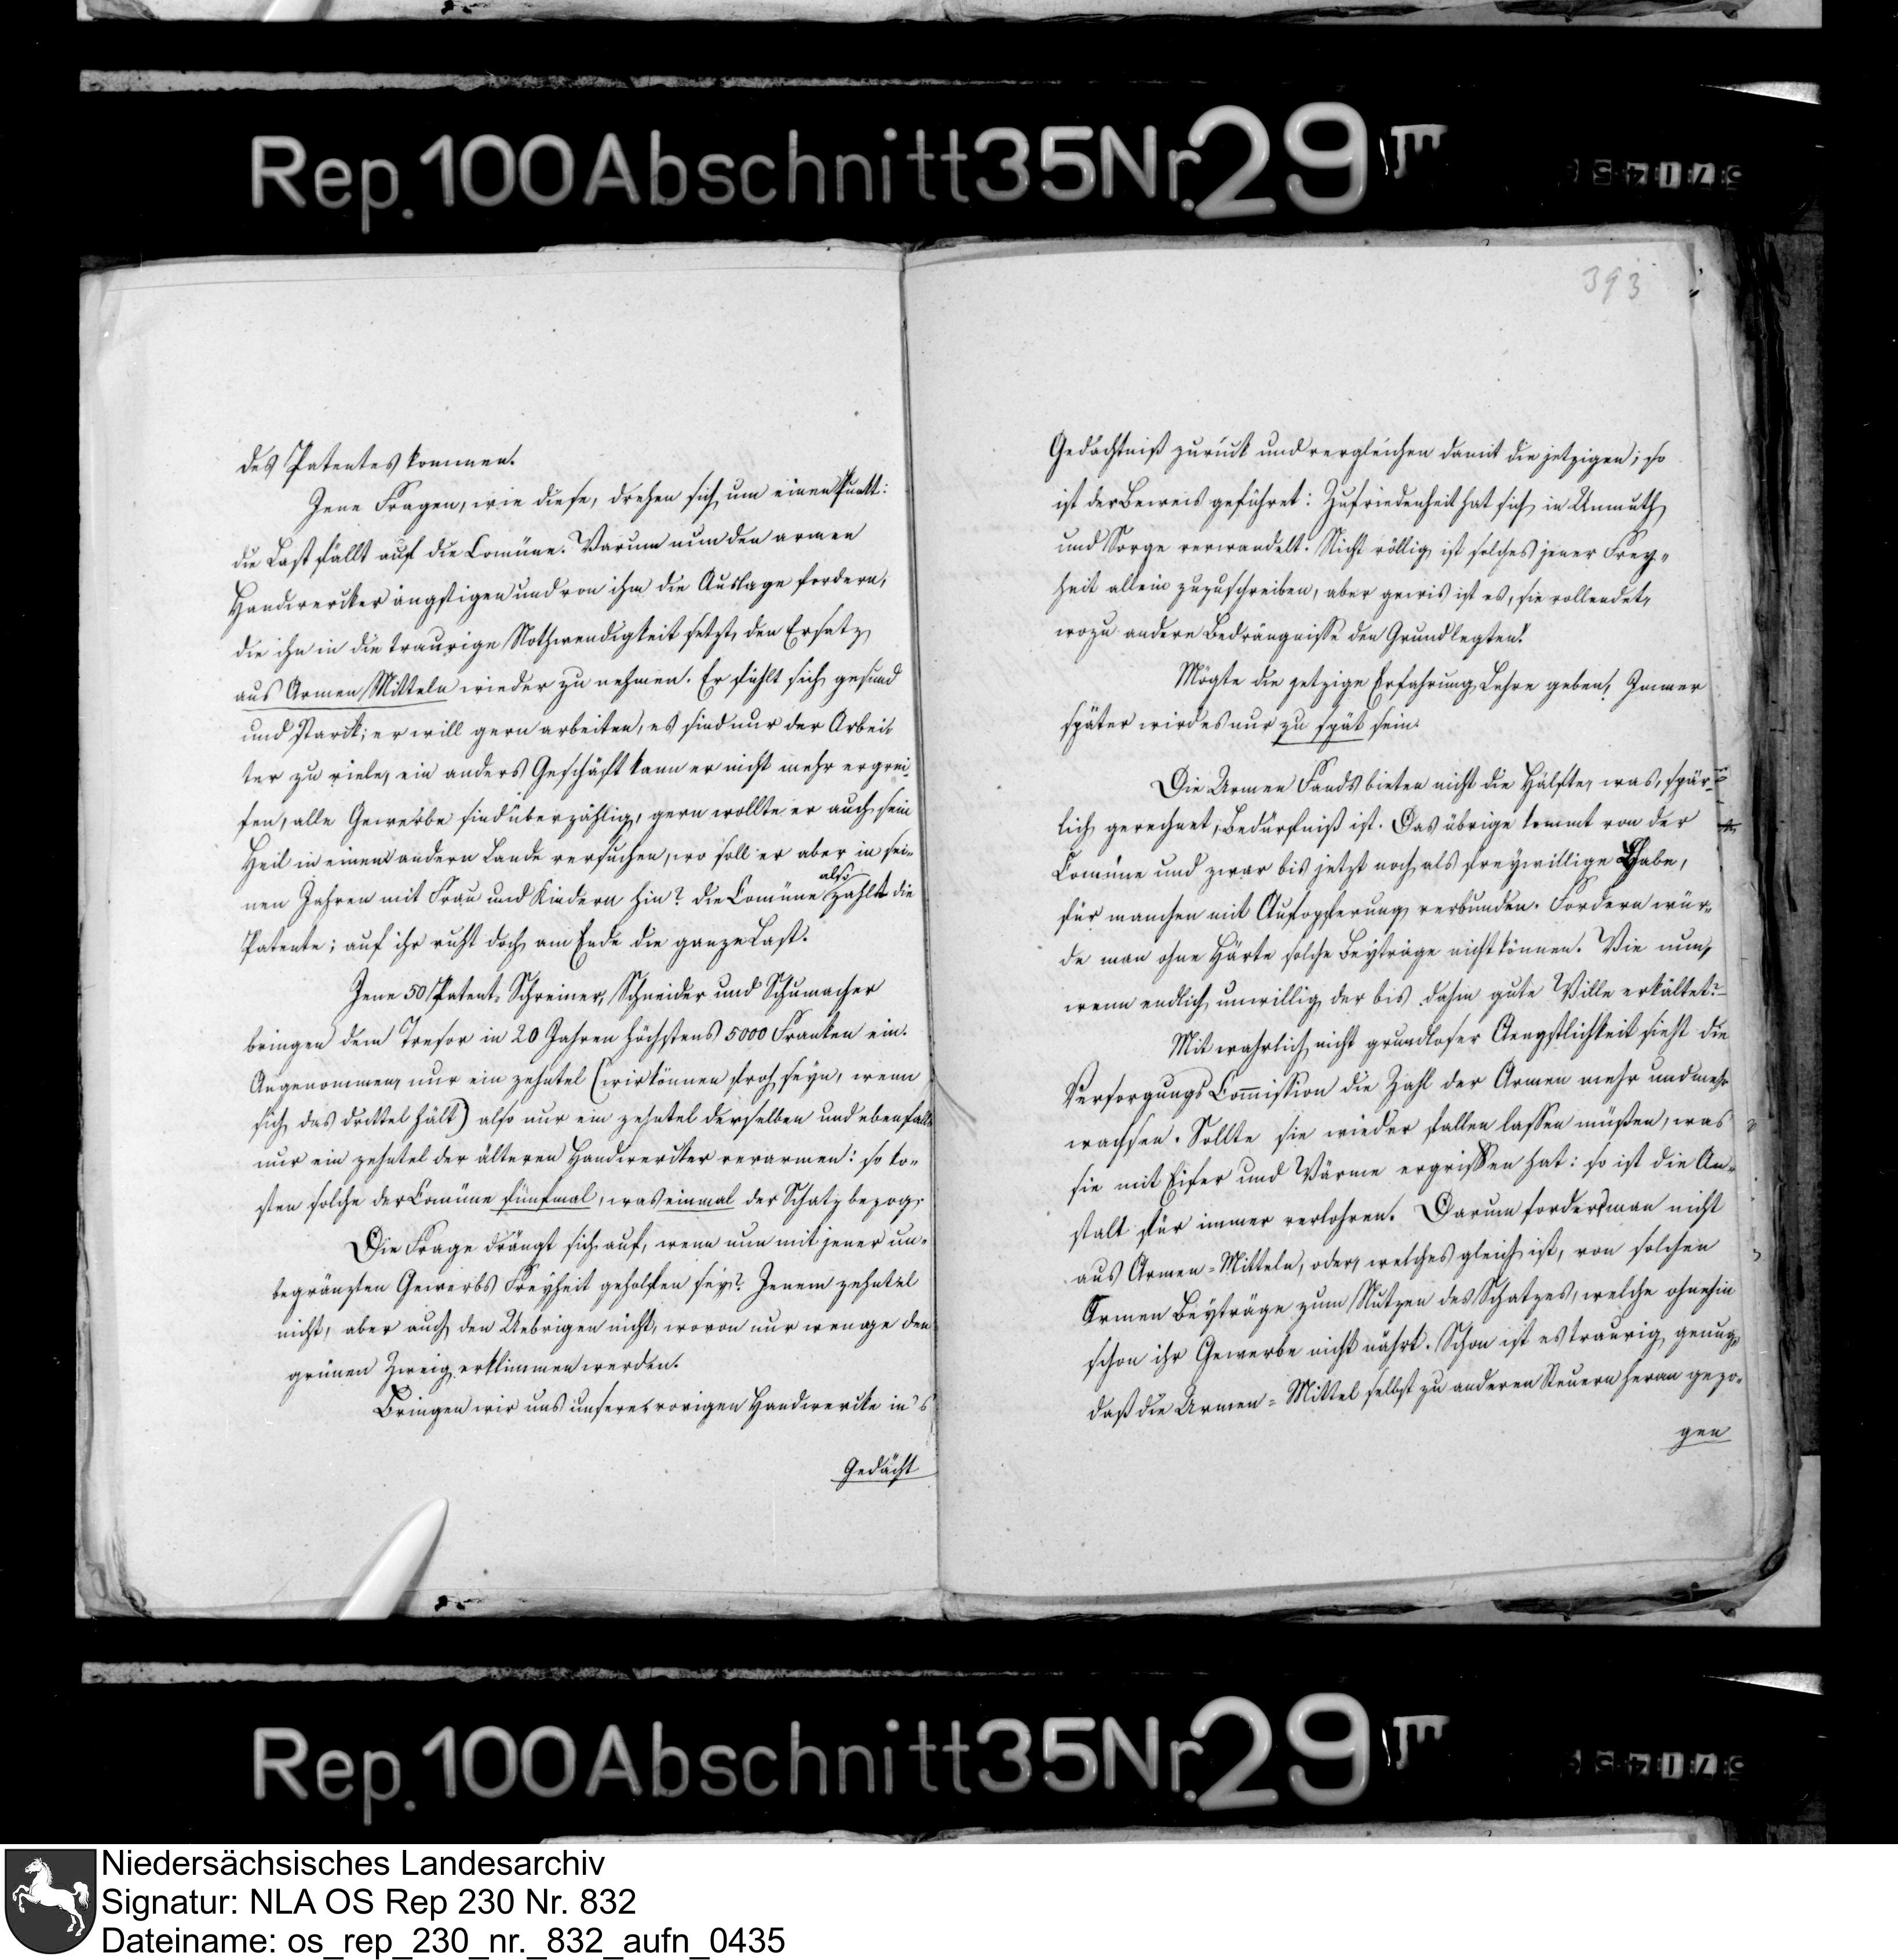 Rep. 100 Abschnitt 35 Nr. 29
393
des Patentes kommen.
Jene Fragen, wie diese, drehen sich um einen Punkt:
die Last fällt auf die Comüne. Warum nun den armen
Handwercker ängstigen und von ihm die Auslage fordern,
die ihn in die traurige Nothwendigkeit setzt, den Ersatz
aus Armen Mitteln wieder zu nehmen. Er fühlt sich gesund
und starck; er will gern arbeiten, es sind nur der Arbei-
ter zu viele, ein anders Geschäft kann er nicht mehr ergrei-
fen, alle Gewerbe sind überzählig, gern wollte er auch sein
Heil in einem andern Lande versuchen, wo soll er aber in sei-
also
nen Jahren mit Frau und Kindern hin? die Comüne zahlt die
Patente; auf ihr ruht doch am Ende die ganze Last.
Jene 50 Patent-Schreiner, Schneider und Schumacher
bringen dem Tresor in 20 Jahren höchstens 5000 Franken ein.
Angenommen, nur ein zehntel (wir können froh seyn, wenn
sich das drittel hält) also nur ein zehntel derselben und ebenfalls
nur ein zehntel der älteren Handwercker verarmen: so ko-
sten solche der Comüne fünfmal, was einmal der Schatz bezog.
Die Frage drängt sich auf, wenn nun mit jener un-
begränzten Gewerbs Freyheit geholfen sey? Jenem zehntel
nicht, aber auch den Uebrigen nicht, wovon nur wenige den
grünen Zweig erklimmen werden.
Bringen wir uns unsere vorigen Handwercke in's
Gedächt
Gedächtniß zurück und vergleichen damit die jetzigen; so
ist der Beweis geführet: Zufriedenheit hat sich in Unmuth
und Sorge verwandelt. Nicht völlig ist solches jener Frey-
heit allein zuzuschreiben, aber gewis ist es, sie vollendet,
wozu andere Bedrängnisse den Grund legten!
Mögte die jetzige Erfahrung Lehre geben! Immer
später wird es nur zu spät sein.
Die Armen Fonds bieten nicht die Hälfte, was, spär-
lich gerechnet, Bedürfniß ist. Das übrige kommt von der
Comüne und zwar bis jetzt noch als freywillige Gabe,
für manchen mit Aufopferung verbunden. Fordern wür-
de man ohne Härte solche Beyträge nicht können. Wie nun,
wenn endlich unwillig der bis dahin gute Wille erkältet?
Mit wahrlich nicht grundloser Aengstlichkeit sieht die
Versorgungs Commission die Zahl der Armen mehr und mehr
wachsen. Sollte sie wieder fallen lassen müßen, was
sie mit Eifer und Wärme ergriffen hat: so ist die An-
stalt für immer verlohren. Darum fordere man nicht
aus Armen-Mitteln, oder, welches gleich ist, von solchen
Armen Beyträge zum Nutzen des Schatzes, welche ohnehin
schon ihr Gewerbe nicht nährt. Schon ist es traurig genug,
daß die Armen-Mittel selbst zu anderen Steuern heran gezo-
gen
Rep. 100 Abschnitt 35 Nr. 29
Niedersächsisches Landesarchiv
Signatur: NLA OS Rep 230 Nr. 832
Dateiname: os_rep_230_nr._832_aufn_0435